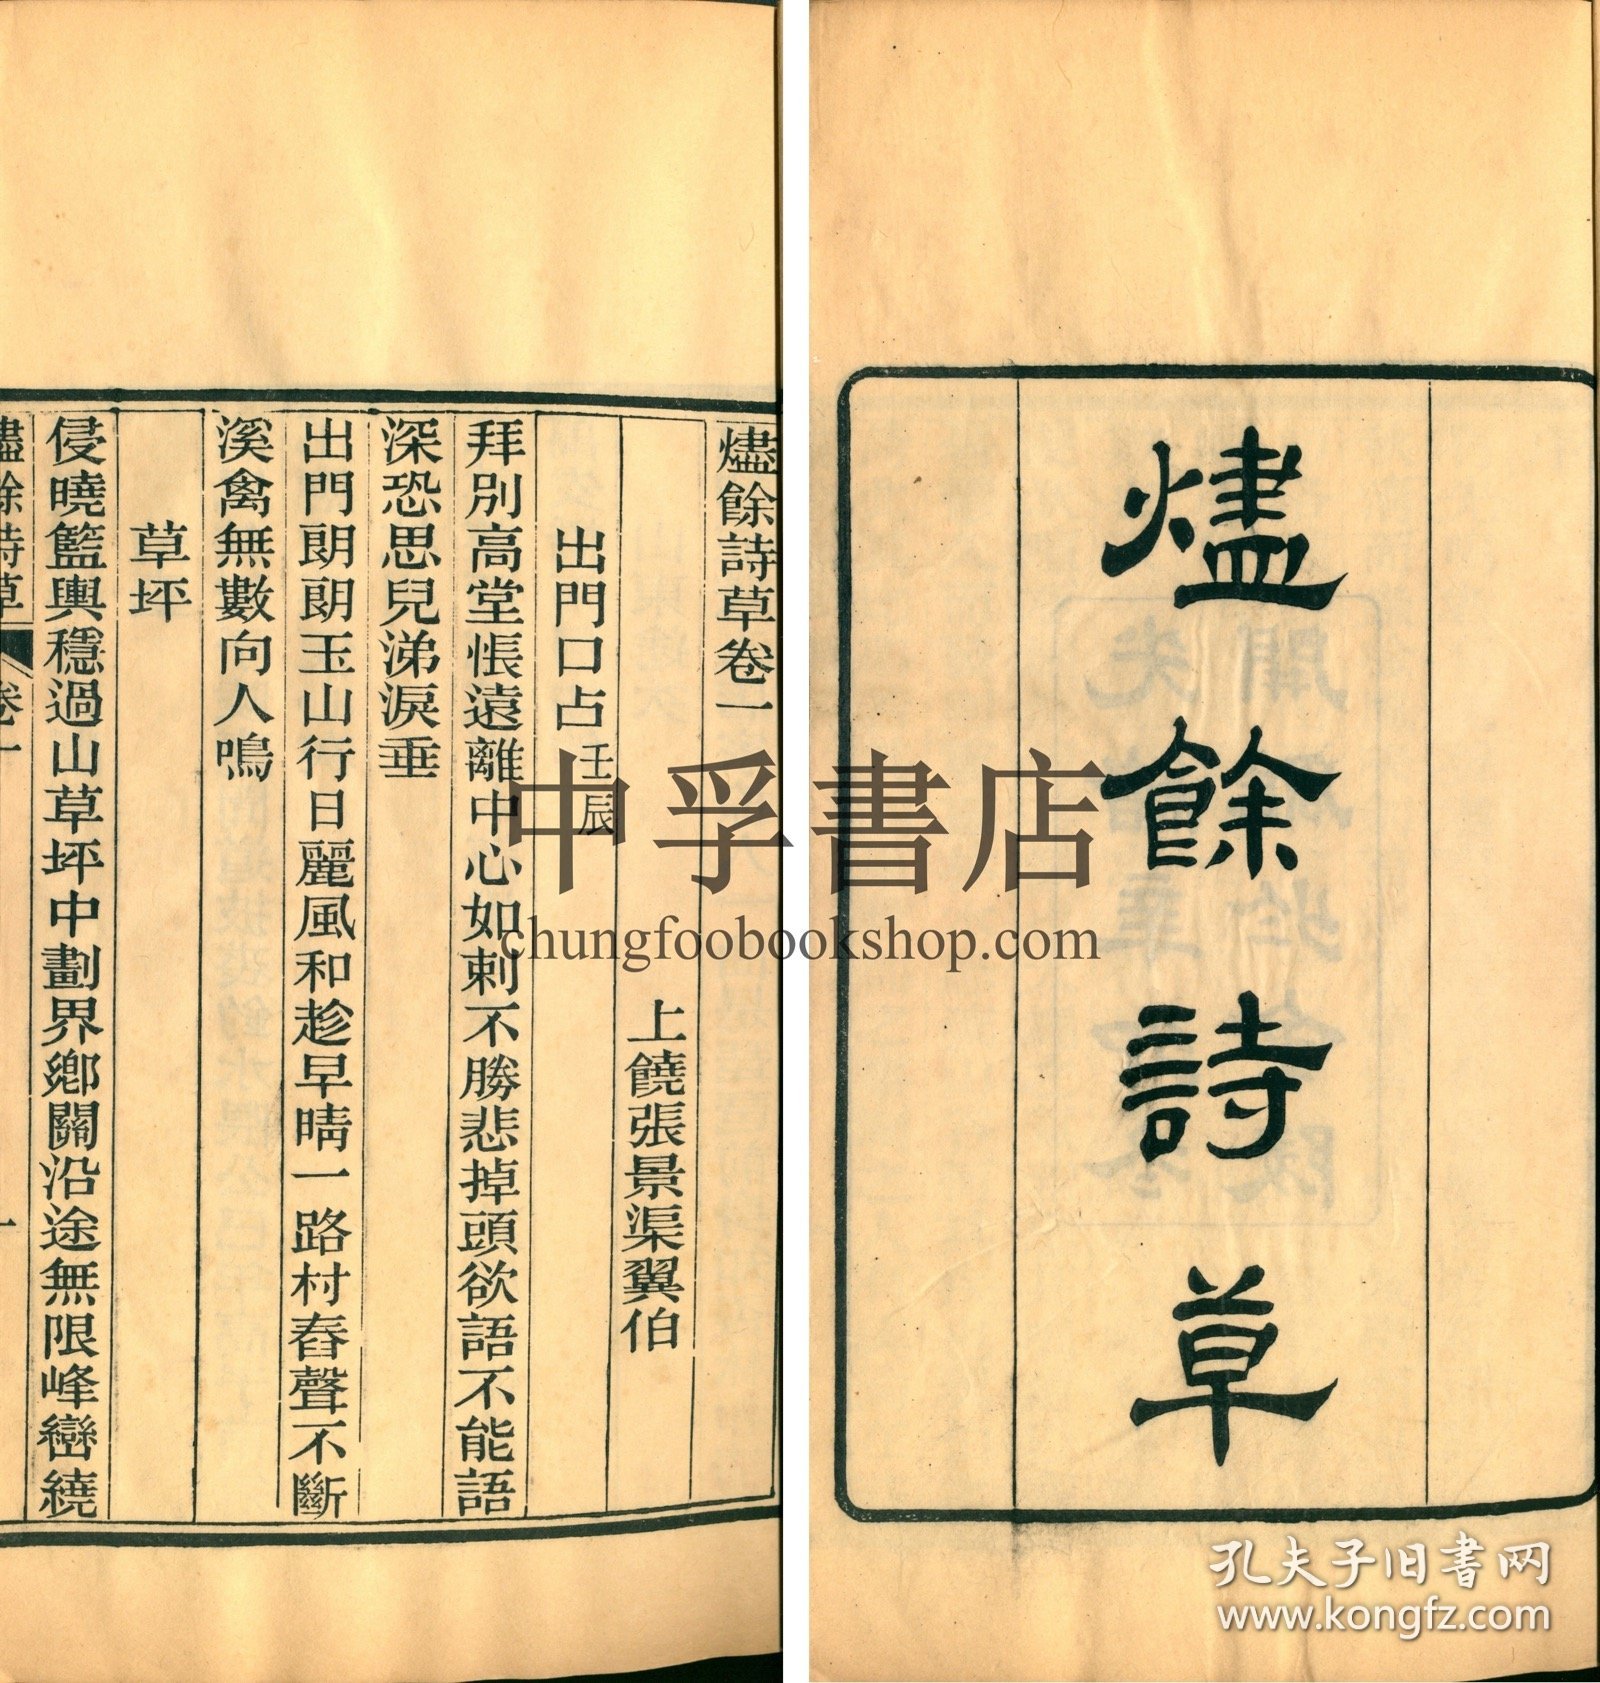 燼餘詩草
燼餘詩草卷一
上饒張景渠翼伯
出門口占壬辰
拜別高堂悵遠離中心如刺不勝悲掉頭欲語不能語
深恐思兒涕淚垂
出門朗朗玉山行日麗風和趁早晴一路村舂聲不斷
溪禽無數向人鳴
草坪
侵曉籃輿穩過山草坪中劃界鄉關沿途無限峰巒繞
燼餘詩草 卷一 一
中孚書店
chungfoobookshop.com
孔夫子旧书网
www.kongfz.com